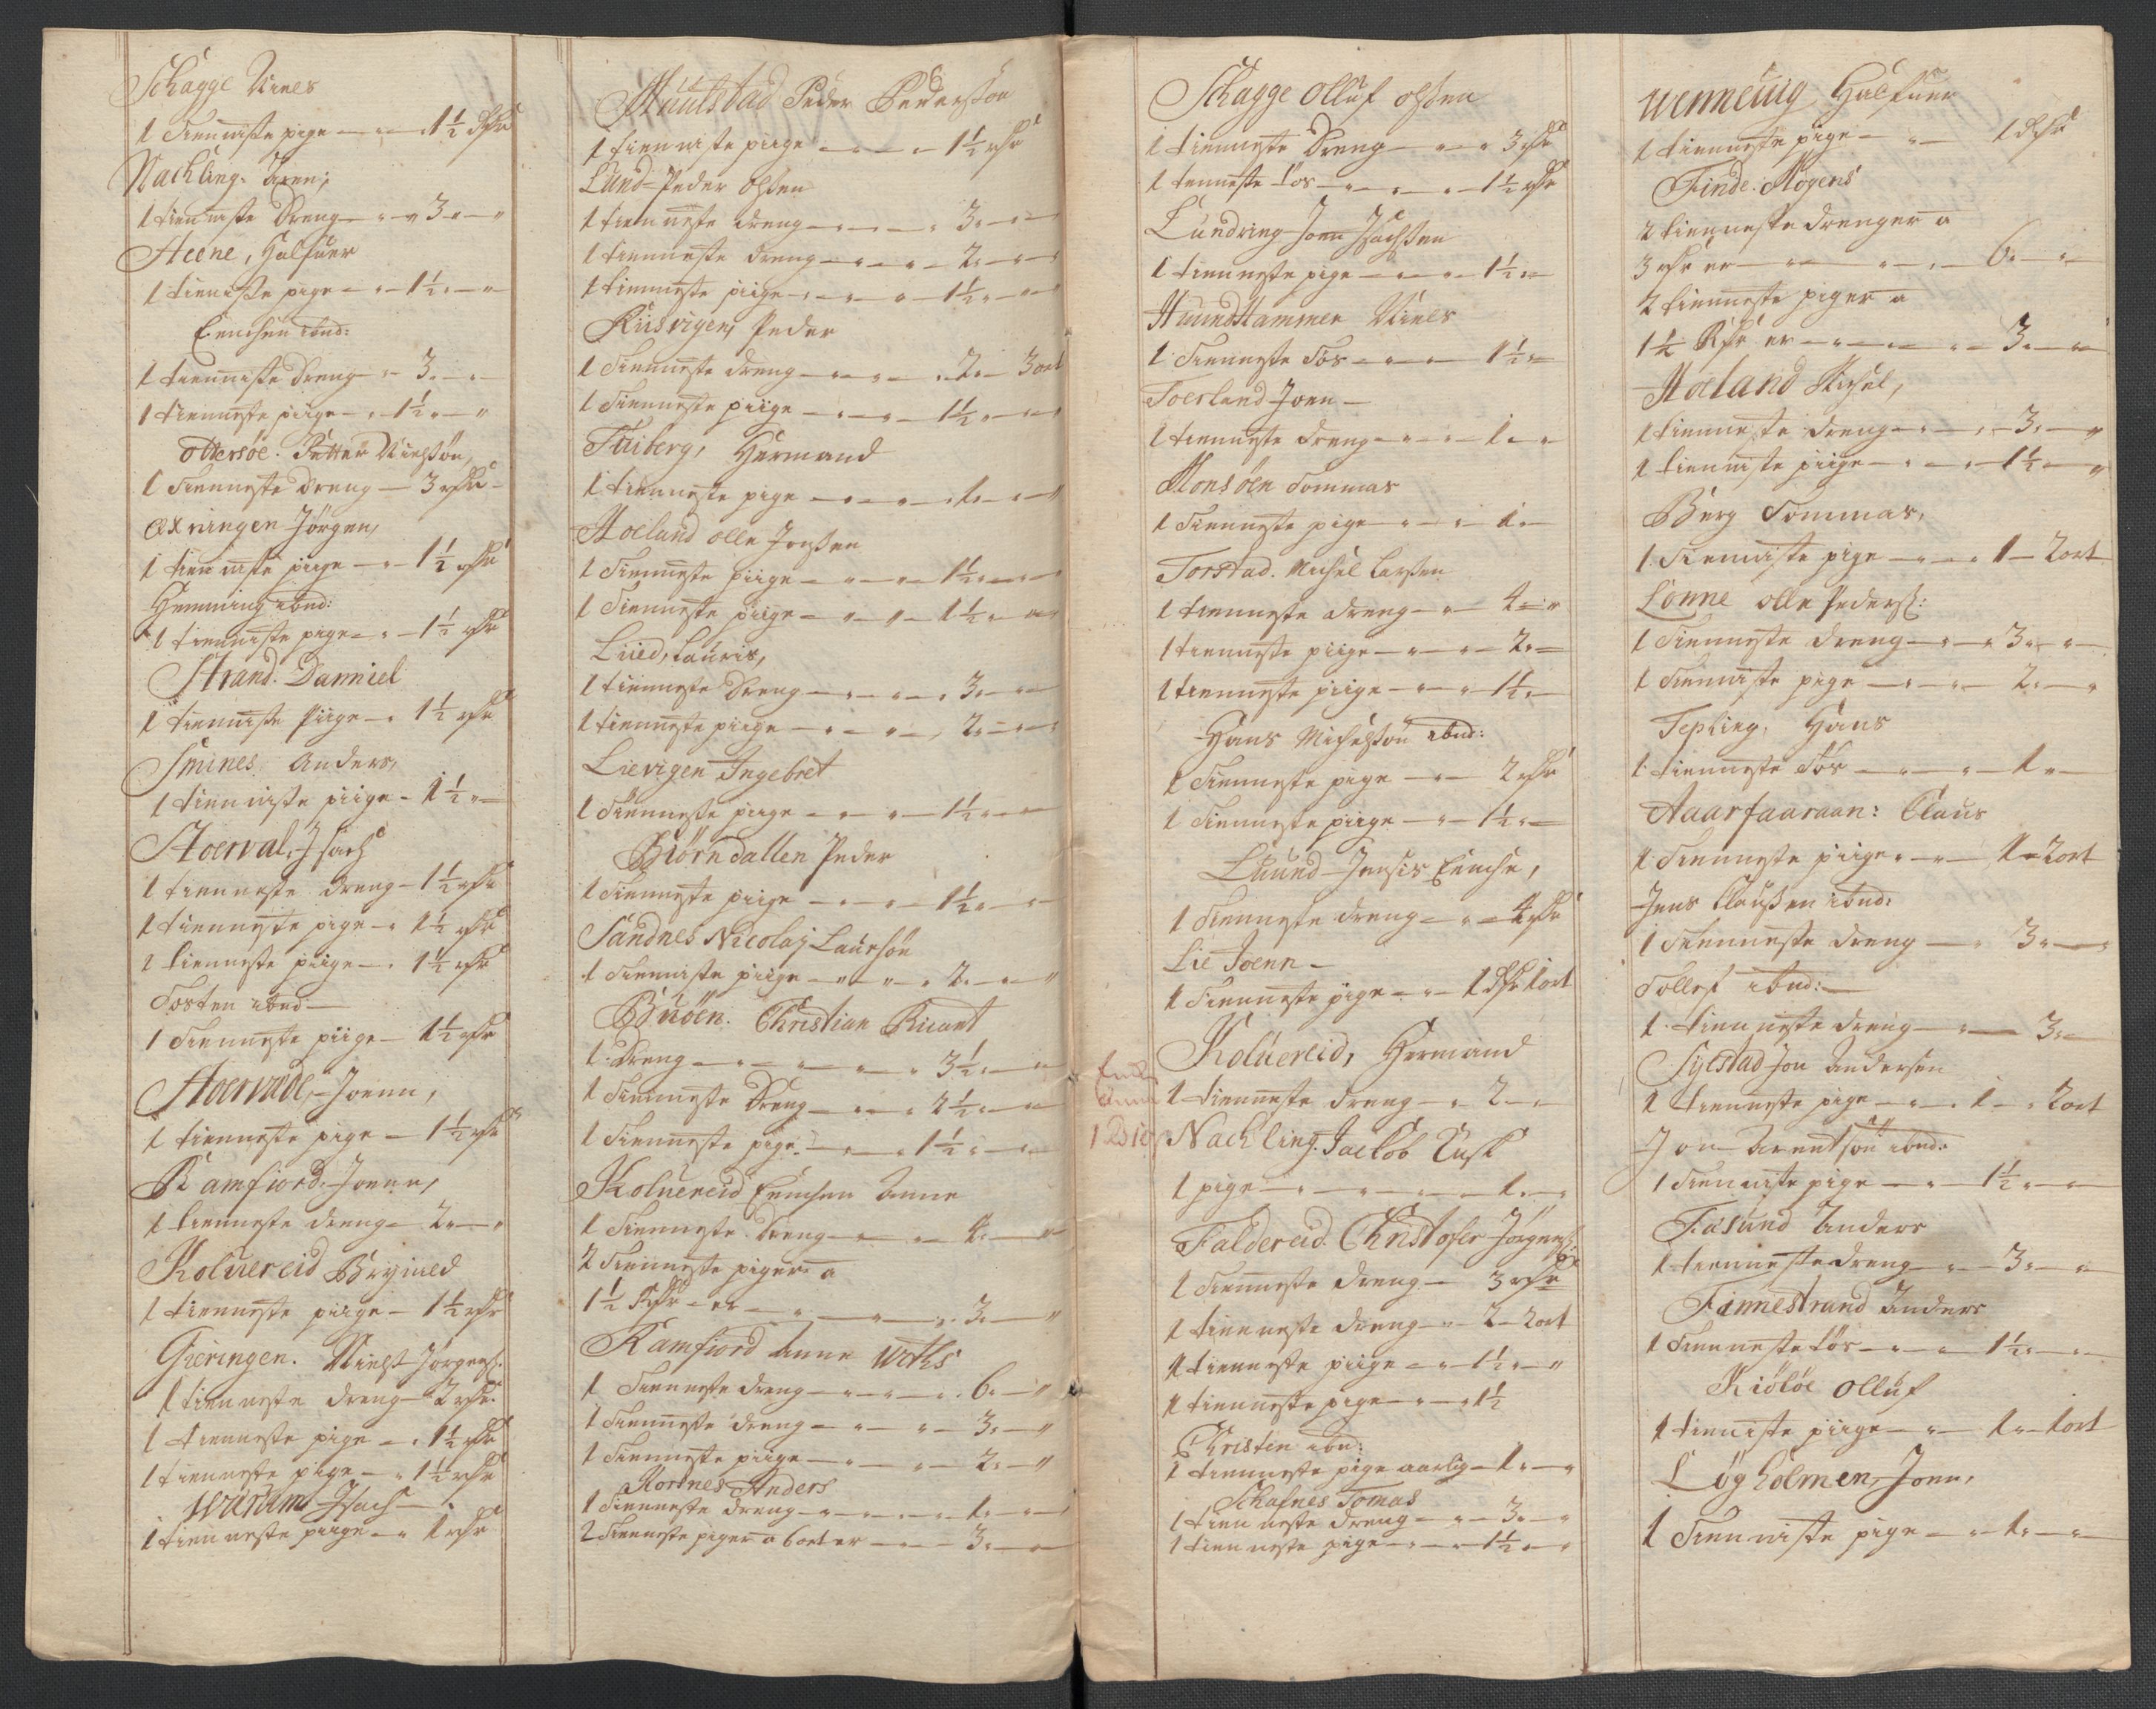 Schagge Niels
1 tienniste pige — " — 1½ rdr
Nachling. Aren,
1 tienniste dreng — " — 3 " — "
Heene, Halfuer
1 tieniste pige — " — 1½ " — "
Enchen ibnd:
1 tienniste dreng — " — 3 " — "
1 tienneste piige — " 1½ " — "
Ottersöe. Petter Nielsön,
1 tienneste dreng — 3 rdr
Oxningen Jörgen,
1 tienniste piige — " — 1½ rdr
Henning ibnd:
1 tienniste pige — " — 1½ rdr
Strand. Danniel
1 tienniste piige — " 1½ rdr
Smines. Anders,
1 tienniste piige — 1½ " —
Hoerval, Isach
1 tienneste dreng — 1½ rdr
1 tienneste pige — " 1½ rdr
1 tienneste piige — " 1½ rdr
Tosten ibnd —
1 tienneste piige — 1½ rdr
Hoervade, Joenn,
1 tienneste pige — 1½ rdr
Ramfiord, Joenn,
1 tienneste dreng — 2 " — "
Koluereid Brÿnild
1 tienneste piige — 1½ rdr
Gieringen. Niels Jörgens:
1 tienneste dreng — 2 rdr
1 tienneste pige — " 1½ rdr
1 tienneste piige — " 1½ rdr
Wäram Isach — "
1 tienneste piige — " 1 rdr
Huulstad Peder Pedersön
1 tienniste piige — " — " — 1½ rdr
Lund Peder Olsen
1 tienneste dreng — " — " — " 3 " — "
1 tienneste dreng — " — " — 2 " — "
1 tienneste piige — " — " — 1½ " — "
Riisvigen, Peder
1 tienneste dreng — " — " — " 2 " — 3 ort
1 tienneste piige — " — " — 1½ " — "
Fiuiberg, Hermand
1 tienneste pige — " — " — 1 " — "
Hoeland Olle Jonsen
1 tienneste piige — " — " — 1½ " — "
1 tienneste piige — " — " — 1½ " — "
Lied, Lauris,
1 tienneste dreng — " — " — " 3 " — "
1 tienneste piige — " — " — 2 " — "
Lievigen Ingebret
1 tienneste piige — " — " — 1½ " — "
Biörndallen Peder
1 tienneste piige — " — " — 1½ " — "
Sandnes Nicolaj Laursön
1 tienniste piige — " — " — 2 " — "
Buöen. Christian
1 dreng — " — " — " — " 3½ " — "
1 tienneste dreng — " — " 2½ " — "
1 tienneste pige — " — " 1½ " — "
Koluereid Enchen Anne
1 tienneste dreng — " — " — 4 " — "
2 tienneste piger a
1½ Rdr — er — " — " — " 3 " — "
Ramfiord Anne
1 tienneste dreng — " — " — " 6 " — "
1 tienneste dreng — " — " — 3 " — "
1 tienneste piige — " — " — 2 " — "
Rosnes Anders
1 tienneste dreng — " — " — 1 " — "
2 tienneste piger a 6 ort er — " — 3 " — "
Schagge Olluf Olsen
1 tienneste dreng — " — " 3 rdr
1 tenneste tös — " — " — 1½ rdr
Lundring Joen Isachsen
1 tienneste pige — " — " 1½ " —
Huundhammer Niels
1 tienneste tös — " — " 1½ " —
Foerland Joen —
1 tienneste dreng — " — " — 1 " — "
Monsöen Tommas
1 tienneste pige — " — " 1 " —
Torstad. Michel Larsen
1 tienneste dreng — " — 4 " — "
1 tienneste piige — " — " 2 " —
1 tienneste piige — " — " 1½ " —
Hans Michelsön ibnd:
1 tienneste pige — " — 2 rdr
1 tienneste piige — " — 1½ " —
Luund Jensis Enche,
1 tienneste dreng — " — 4 rdr
Lie Joenn —
1 tienneste pige — " — 1 rdr 1 ort
Koluereid, Hermand
1 tienneste dreng — " 2 — "
Nachling. Jackob
1 pige — " — " — " — 1 " — "
Faldereid. Christofer Jörgens:
1 tienneste dreng — 3 rdr
1 tienneste dreng — " 2 — 2 ort
1 tienneste piige — " — 1½ " — "
1 tienneste pige — " — " 1½
Christen ibn:
1 tienneste pige aarlig — 1 " — "
Schafnes Tomas
1 tienneste dreng — " — 3 " — "
1 tienneste pige — " — " 1½ " — "
Wennemig Halfuer
1 tienneste pige — " — 1 rdr
Finde. Mogens
2 tienneste drenger a
3 rdr er — " — " — 6 " — "
2 tienneste piger a
1½ Rdr er — " — " — 3 " — "
Hoeland Michel,
1 tienneste dreng — " — " 3 " — "
1 tienniste piige — " — " 1½ " — "
Berg Tommas,
1 tienniste pige — " — " 1 — 2 ort
Lonne Olle Peders:
1 tienneste dreng — " — " 3 " — "
1 tienniste pige — " — " 2 " — "
Tepling, Hans
1 tienneste tös — " — " 1 " —
Aaarfaaraan: Claus
1 tienneste piige " — " — 1 — 2 ort
Jens Clausen ibnd:
1 tienneste dreng — " 3 " — "
Tollef ibnd: —
1 tienneste dreng — " — 3 " —
Sylstad Jon Andersen
1 tienneste pige — " — " 1 — " 2 ort
Jon Arentsön ibnd:
1 tienniste pige — " — 1½ " — "
Fasund Anders
1 tienneste dreng — " — 3 " — "
Finnestrand Anders
1 tienneste tös — " — " 1½ " — "
Kiölöe Olluf
1 tienniste piige — " — 1 " — 1 ort
Lögholmen, Joen,
1 tienniste pige — " — 1 " — "